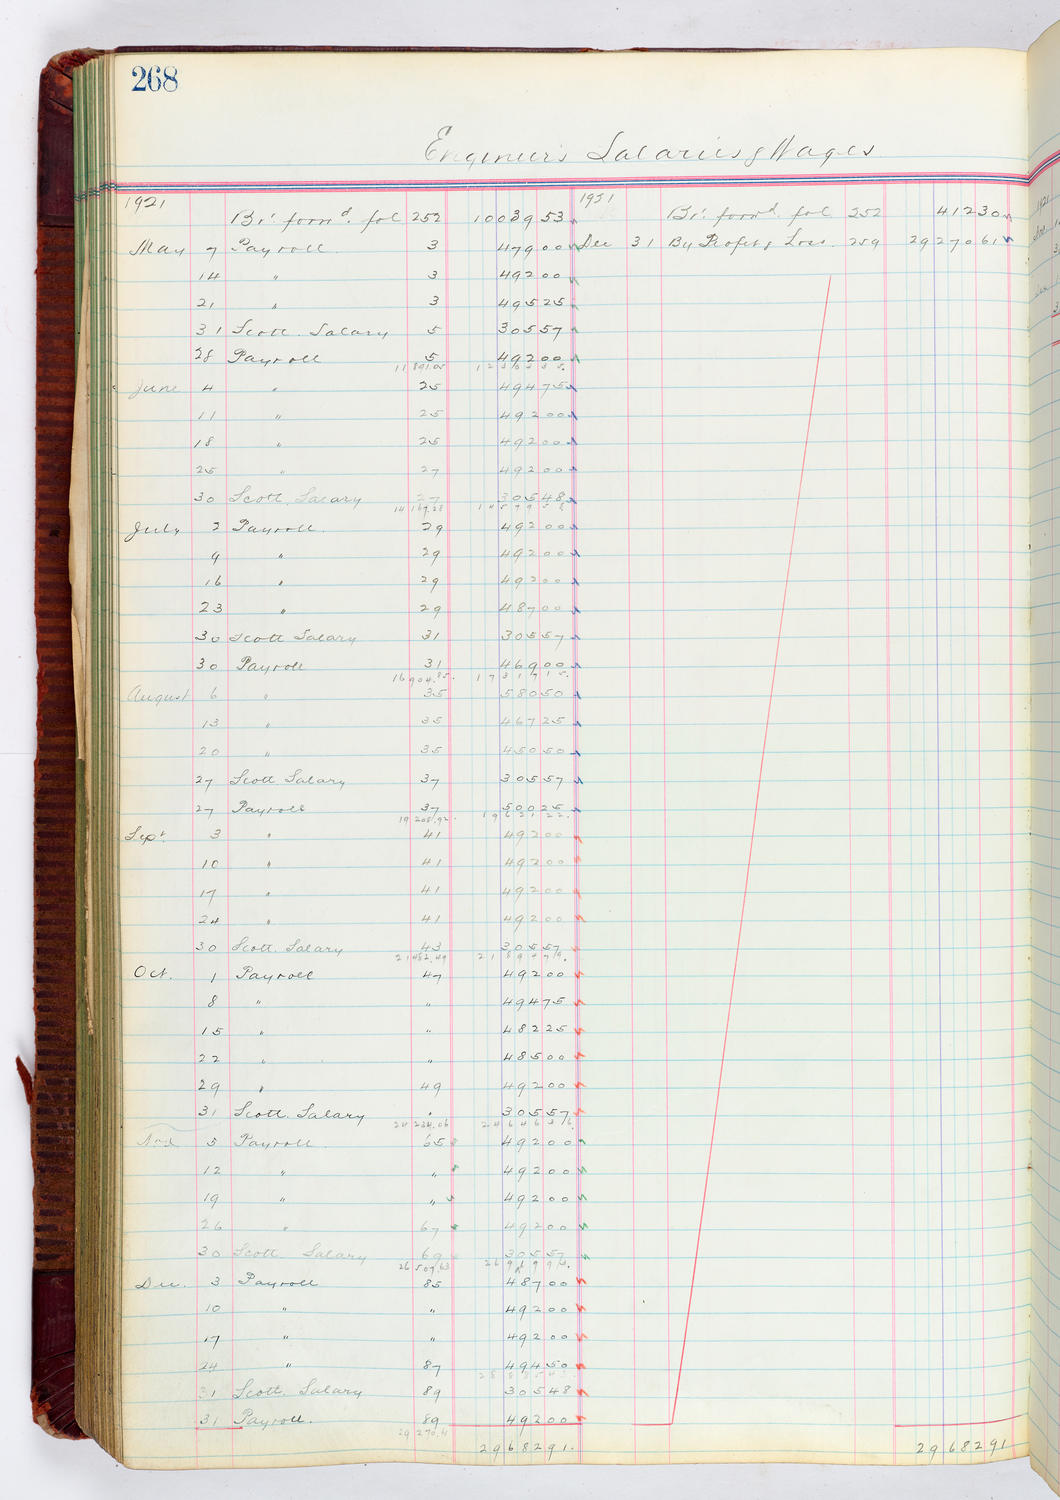 268
Engineer's Salaries & Wages
1921
Br't forw'd. fol 252 10039 53
May 7 Payroll 3 479 00
14 " 3 492 00
21 " 3 495 25
31 Scott. Salary 5 305 57
28 Payroll 5 492 00
11891.05
June 4 " 25 494 75
11 " 25 492 00
18 " 25 492 00
25 " 27 492 00
30 Scott. Salary 27 305 48
14169.28
July 2 Payroll 29 492 00
9 " 29 492 00
16 " 29 492 00
23 " 29 487 00
30 Scott Salary 31 305 57
30 Payroll 31 469 00
16904.85. 17317 15.
August 6 " 35 580 50
13 " 35 467 25
20 " 35 450 50
27 Scott Salary 37 305 57
27 Payroll 37 500 25
19208.92. 19621 22.
Sept. 3 " 41 492 00
10 " 41 492 00
17 " 41 492 00
24 " 41 492 00
30 Scott. Salary 43 305 57
21482.49 21894 79.
Oct. 1 Payroll 47 492 00
8 " " 494 75
15 " " 482 25
22 " " 485 00
29 " 49 492 00
31 Scott. Salary " 305 57
24234.06 24646 36.
Nov 5 Payroll 65 492 00
12 " " 492 00
19 " " 492 00
26 " 67 492 00
30 Scott. Salary 69 305 57
26507.63
Dec. 3 Payroll 85 487 00
10 " " 492 00
17 " " 492 00
24 " 87 494 50
31 Scott. Salary 89 305 48
31 Payroll. 89 492 00
29270.61
29682 91.
1951
Br't forw'd. fol 252 412 30
Dec 31 By Profit & Loss. 259 29270 61
29682 91